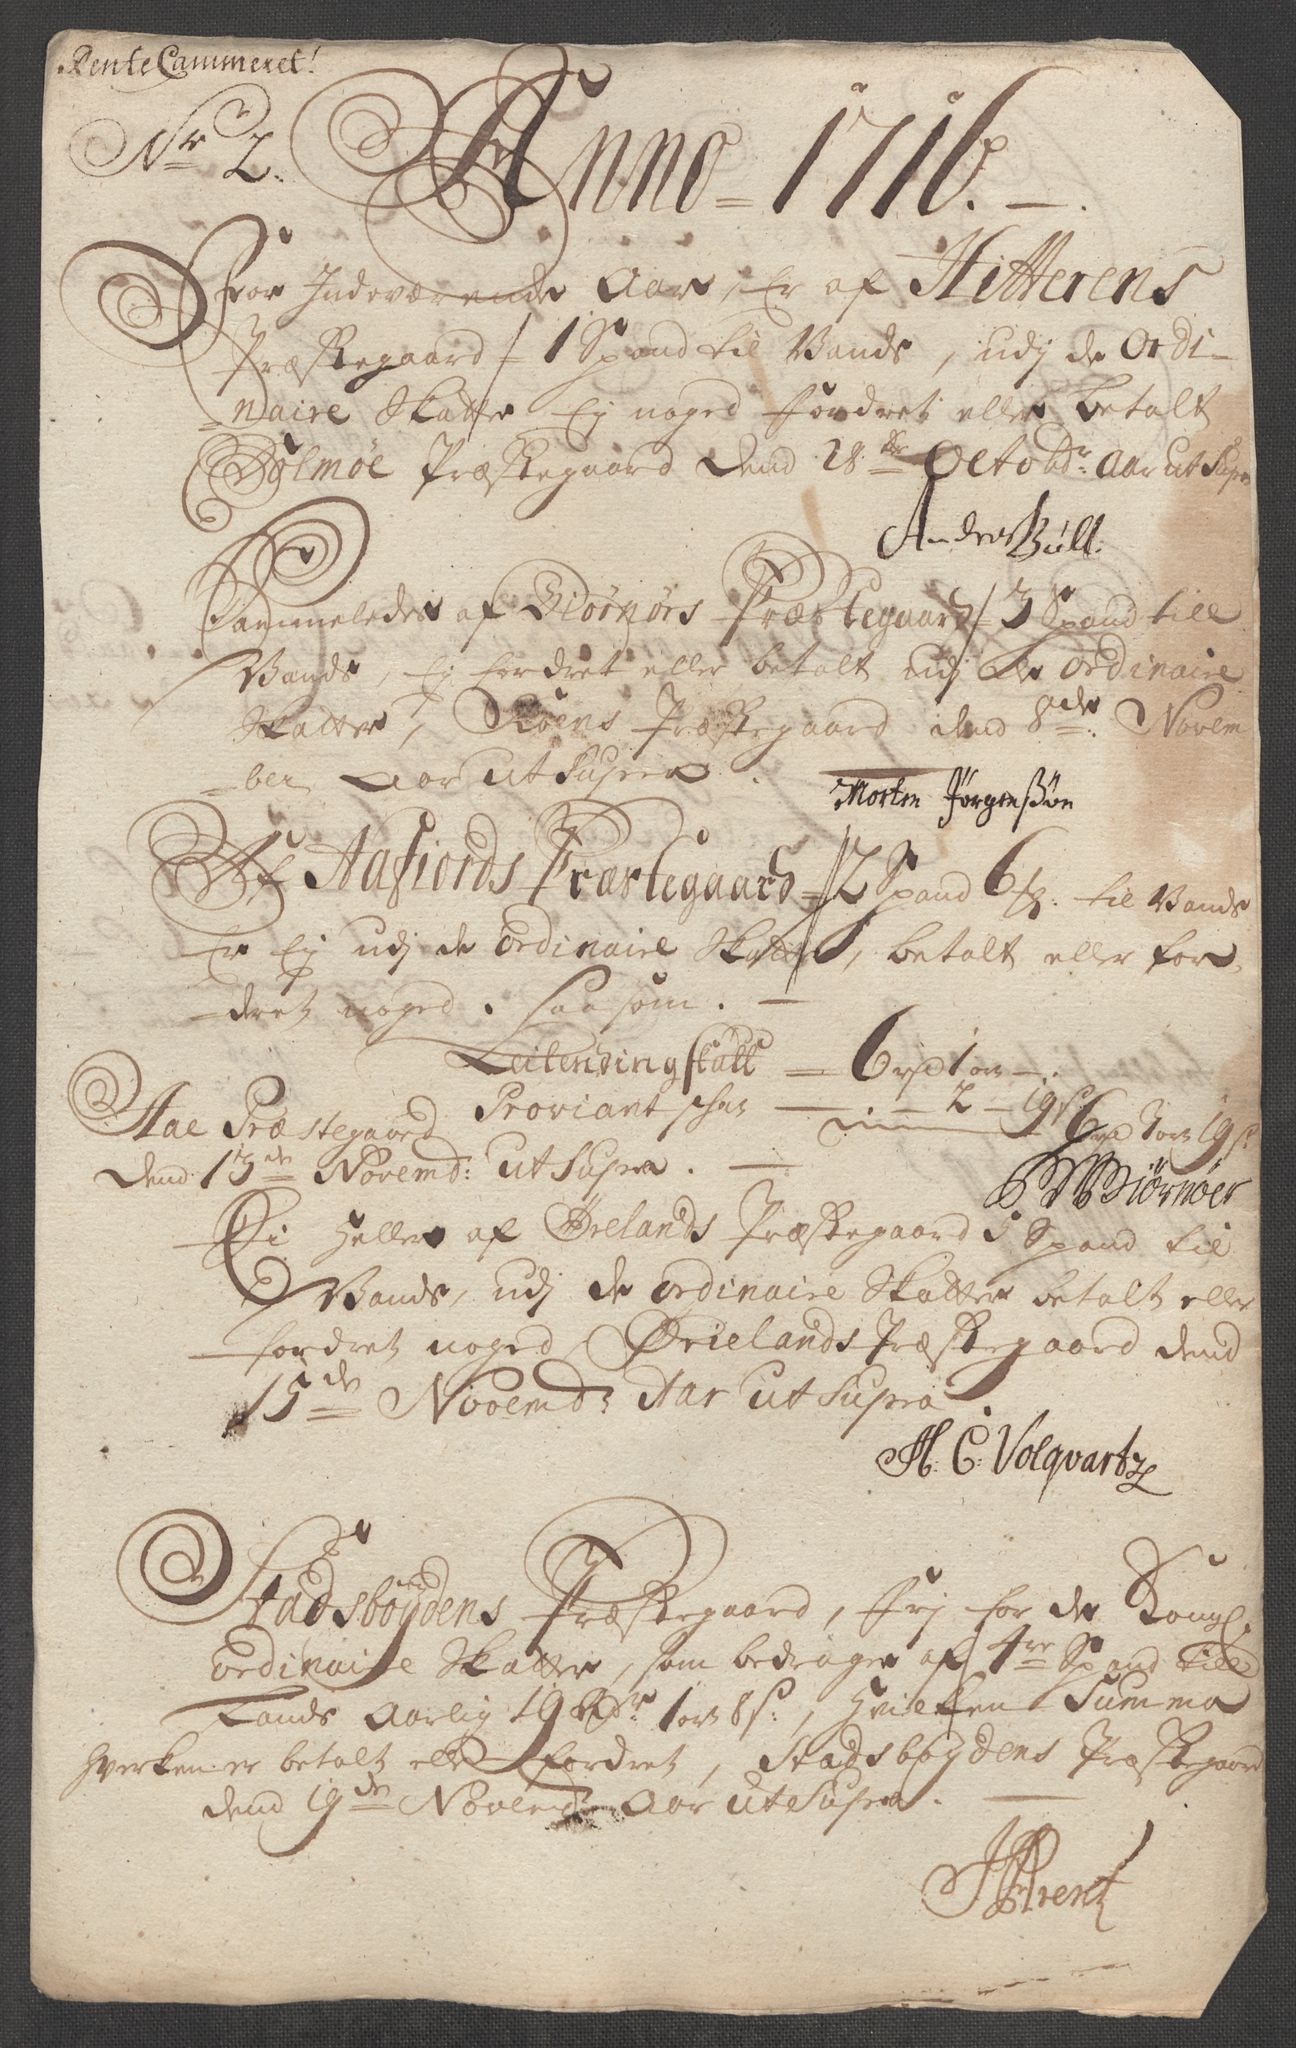 RenteCammeret!
Nr 2. Anno = 1716. —.
For Indeværende Aar, Er af Hitterens
Præstegaard 1 Spand til Bands, udj de Ordi-
naire Skatter Ej noged fordret eller betalt
Dolmøe Præstegaard dend 28de Octobr: Aar ut Supra
Andreas Büll.
Sammeledes af Biørnørs Præstegaard 3 Spand till
Bands, Ej fordret eller betalt udj de ordinaire
Skatter, Røens Præstegaard dend 8de: Novem
ber Aar ut Supra.
Morten Jørgenßøn
Af Aafiords Præstegaard = 2 Spand 6 til Bands
Er Ej udj de ordinaire Skatter, betalt eller for-
dret noged. saasom. —
Leilendingskatt — 6 rd 1 ort —.
Proviant — 2 — 19 s 6 rd 3 ort 19 s
Aae Præstegaard
dend 13de Novembr: ut Supra. —
Biørnøer
Ei heller af Ørelands Præstegaard 5 Spand til
Bands, udj de ordinaire Skatter betalt eller
fordret noged, Ørielands Præstegaard dend
15de Novembr Aar ut Supra.
H. C. Volqvartz
Stadsbøydens Præstegaard, frj for de Kongl.
ordinaire Skatter, som bedrager af 4re Spand till
Lands Aarlig 19 rdr 1 ort 8 s:, Hvilken Summa
hverken er betalt eller fordret, Stadsbøydens Præstegaard
dend 19de Novembr Aar ut Supra. —